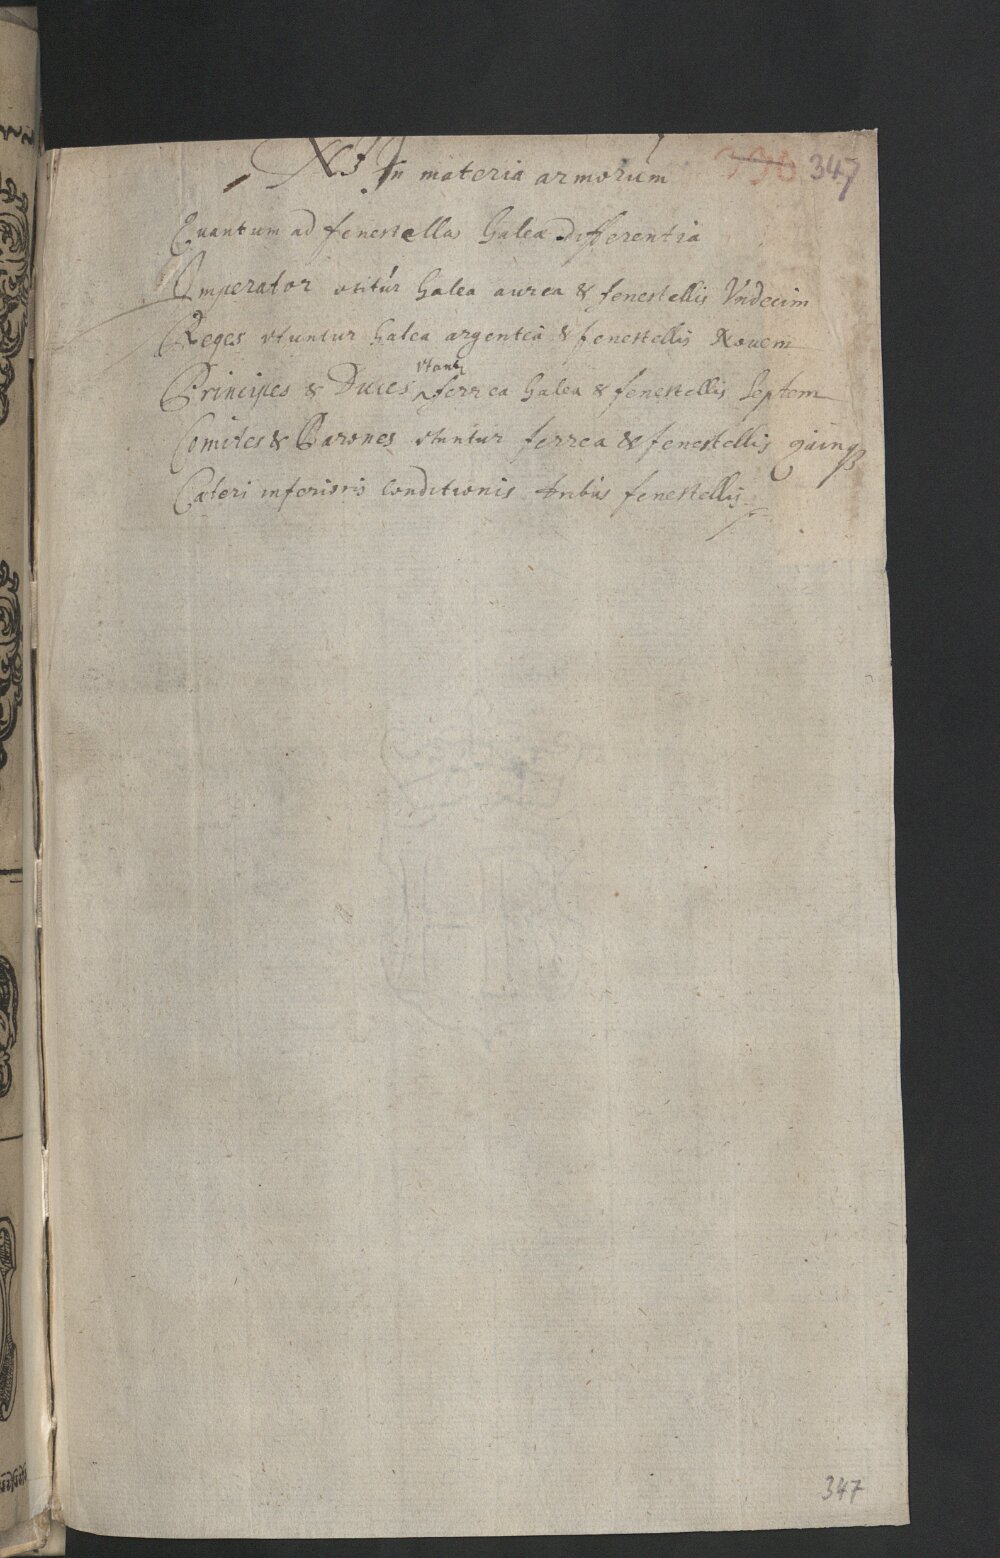 In materia armorum 347
Quantum ad fenestellas Galea Differentia
Imperator vtitúr Galea aurea & fenestellis Vndecim
Reges vtuntur Galea argentea & fenestellis Nouem
Principes & Duces vtuntur ferrea Galea & fenestellis Septem
Comites & Barones vtuntur ferrea & fenestellis quinq
Cateri inferioris Conditionis tribus fenestellis
347